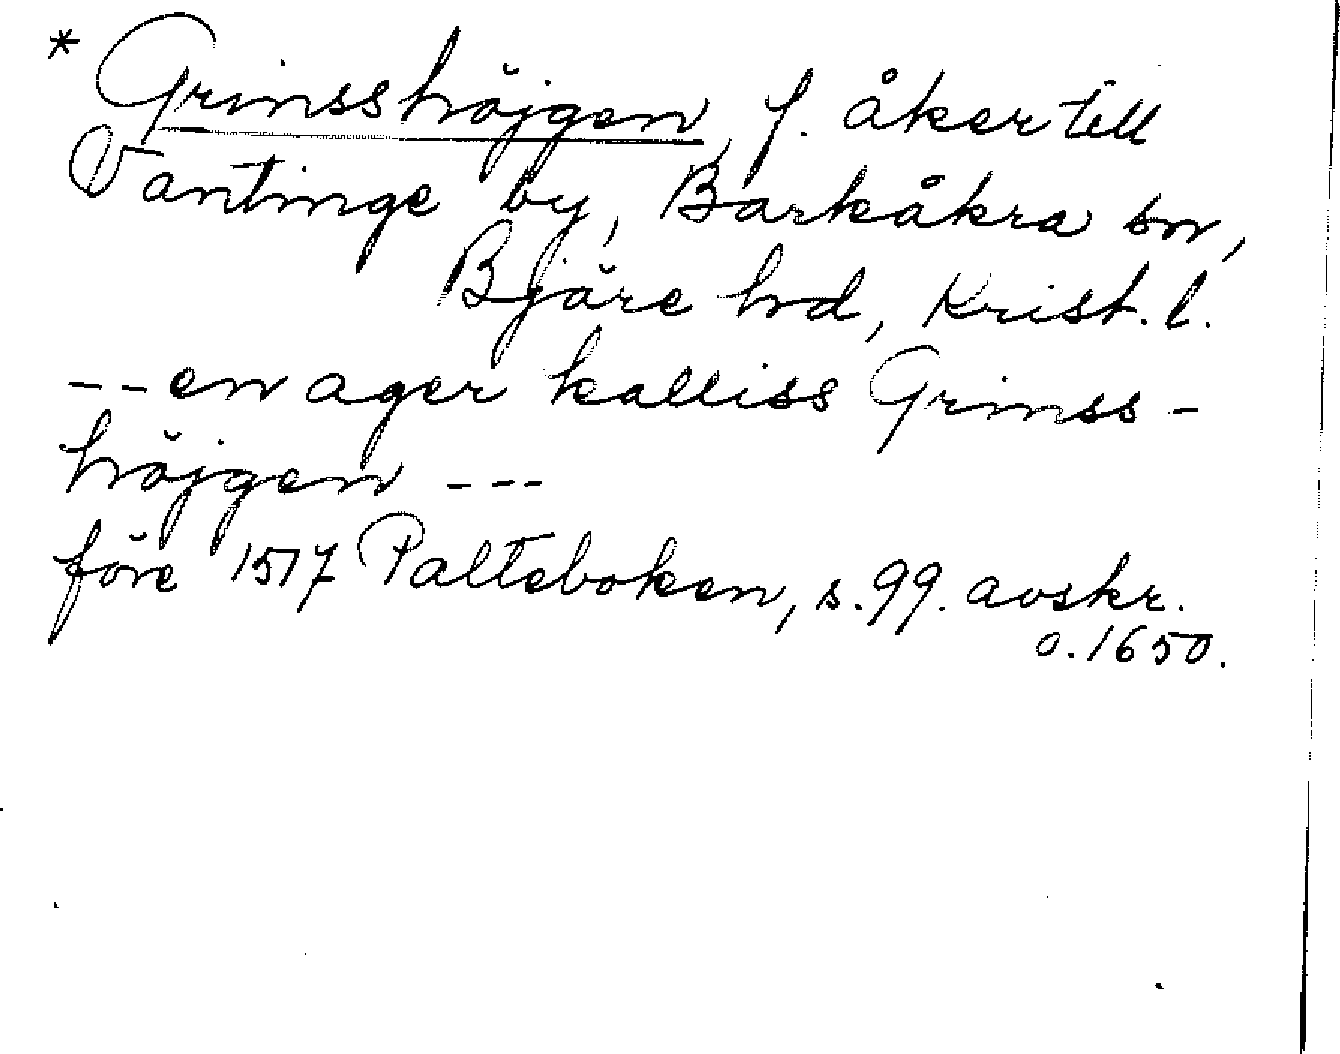 * Grinsshöjgen, f. åker till
Vantinge by, Barkåkra sn,
Bjäre hd, Krist. l.
-- en ager kalliss Grinss-
höjgen ---
före 1517 Palteboken, s. 99. avskr.
o. 1650.